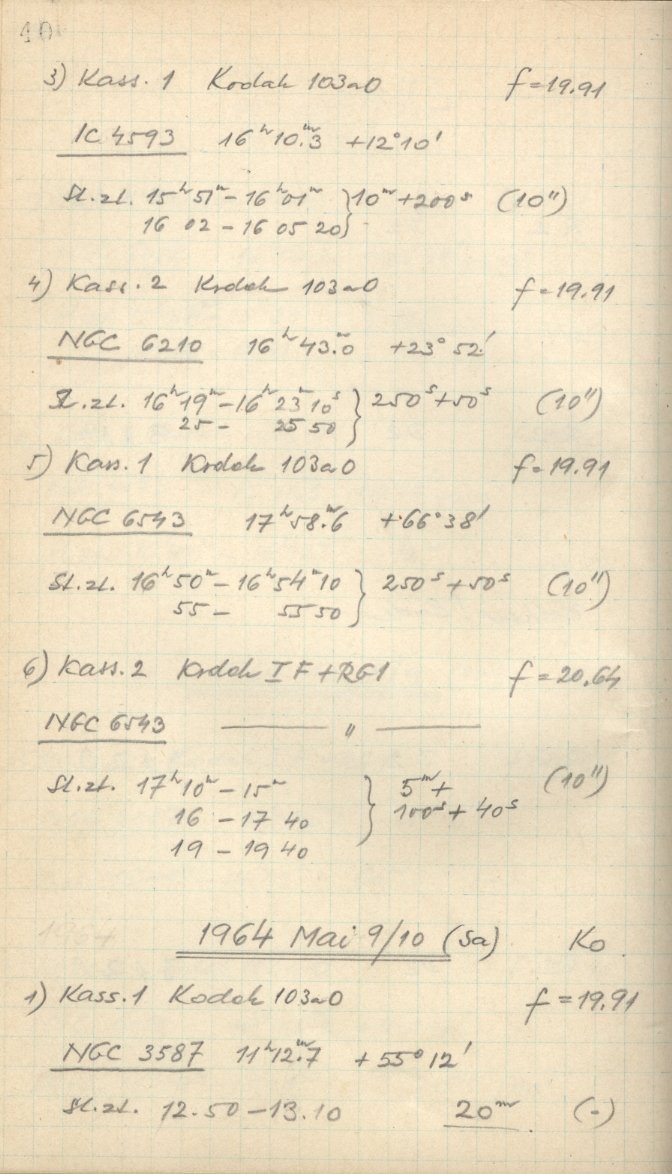 40
3) Kass. 1 Kodak 103aO f=19.91
IC 4593 16ʰ10.ᵐ3 +12°10'
St.zt. 15ʰ51ᵐ–16ʰ01ᵐ } 10ᵐ+200ˢ (10")
16 02 – 16 05 20 }
4) Kass. 2 Kodak 103aO f=19.91
NGC 6210 16ʰ43.ᵐ0 +23°52'
St.zt. 16ʰ19ᵐ–16ʰ23ᵐ10ˢ } 250ˢ+50ˢ (10")
25 – 25 50 }
5) Kass. 1 Kodak 103aO f=19.91
NGC 6543 17ʰ58.ᵐ6 +66°38'
St.zt. 16ʰ50ᵐ–16ʰ54ᵐ10 } 250ˢ+50ˢ (10")
55 – 55 50 }
6) Kass. 2 Kodak IF+RG1 f=20.64
NGC 6543 ——— " ———
St.zt. 17ʰ10ᵐ–15ᵐ } 5ᵐ+ (10")
16 – 17 40 } 100ˢ+40ˢ
19 – 19 40 }
1964 Mai 9/10 (Sa) Ko
1) Kass. 1 Kodak 103aO f=19.91
NGC 3587 11ʰ12.ᵐ7 +55°12'
St.zt. 12.50–13.10 20ᵐ (-)